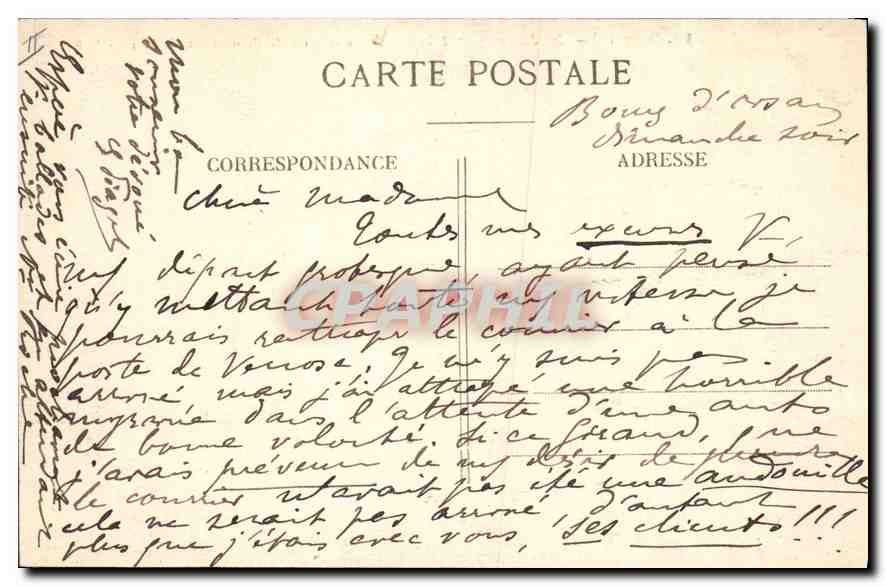 CARTE POSTALE
Bourg d'
dimanche soir
CORRESPONDANCE
ADRESSE
Chère Madame
Toutes mes excuses
départ grotesque, ayant pensé
qu'y mettant toute vitesse je
pourrais rattraper le courrier à la
poste de Venosc. Je n'y suis pas
arrivé mais j'ai attrapé une horrible
dans l'attente d'une auto
de bonne volonté. Si ce Giraud, que
j'avais prévenu de désir de prendre
le courrier n'avait pas été une andouille
cela ne serait pas arrivé, d'autant
plus que j'étais avec vous, ses clients !!!
Espère vous
ballades
ensuite
mon
votre dévoué
CPAPHIL